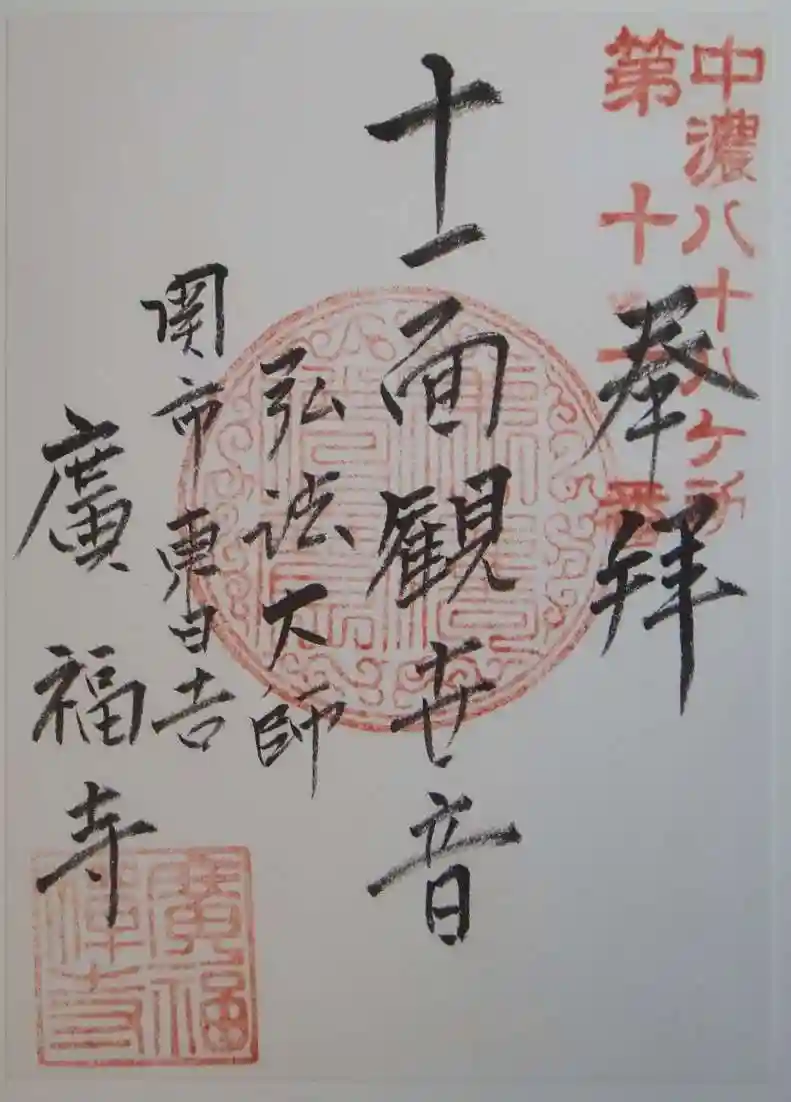 中濃八十八ケ所
第十一番
奉拝
十一面観世音
弘法大師
関市東日吉
廣福寺
廣福
禅寺